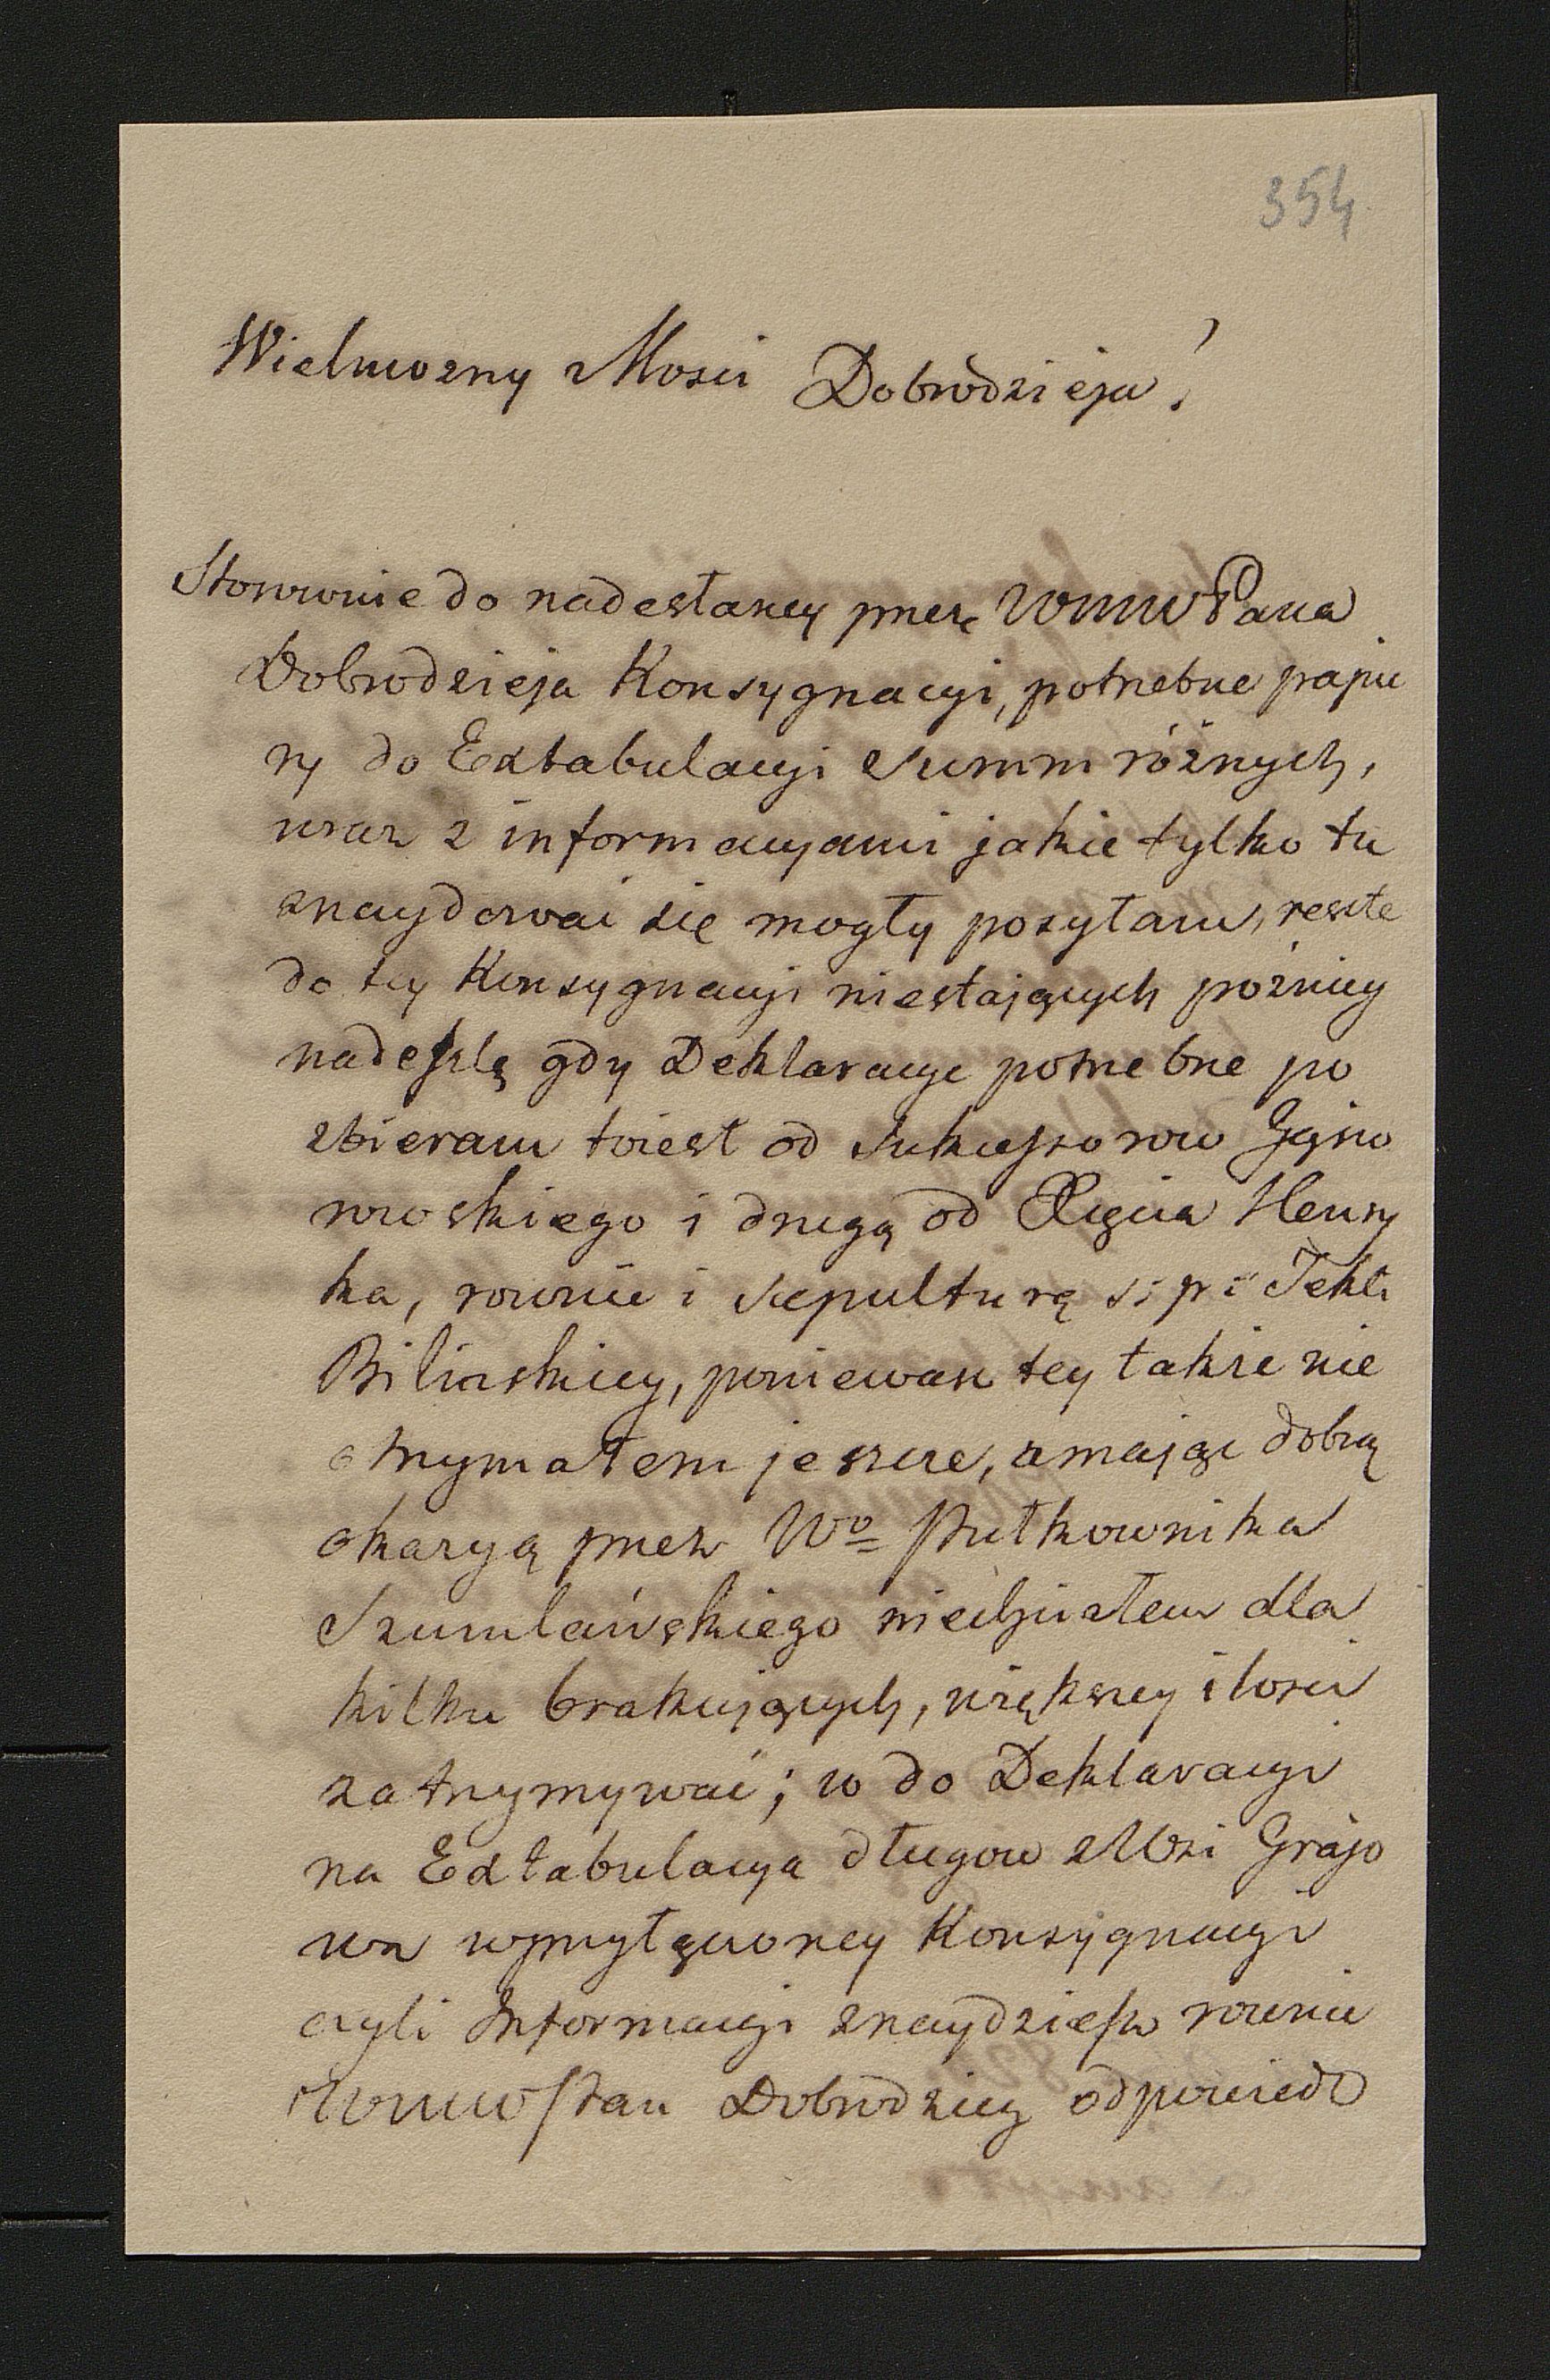 354
Wielmozny Mosci Dobrodzieju!
Stosownie do nadesłaney przez WMW Pana
Dobrodzieja Konsygnacyi, potrzebne papie
ry do Extabulacyi Summ różnych,
wraz z informacyami jakie tylko tu
znaydować się mogły posyłam, reszte
do tey Konsygnacyi niestających pózniey
nadeszlę gdy Deklaracye potrzebne po
zbieram toiest od Sukcessorow
wskiego i drugą od Xięcia Henry
ka, rownie i Sepulturę ś: p: Tekli
Bilinskiey, poniewasz tey takze nie
otrzymałem jeszcze, a mając dobrą
okazyą przez Wo Pułkownika
Szumlańskiego niechciałem dla
kilku brakujących, większey ilosci
zatrzymywać; co do Deklaracyi
na Extabulacya długow z Wsi Grajo
wa wprzyłączoney Konsygnacyi
czyli Informacyi znaydziesz rownie
WMW Pan Dobrodziey odpowiedz